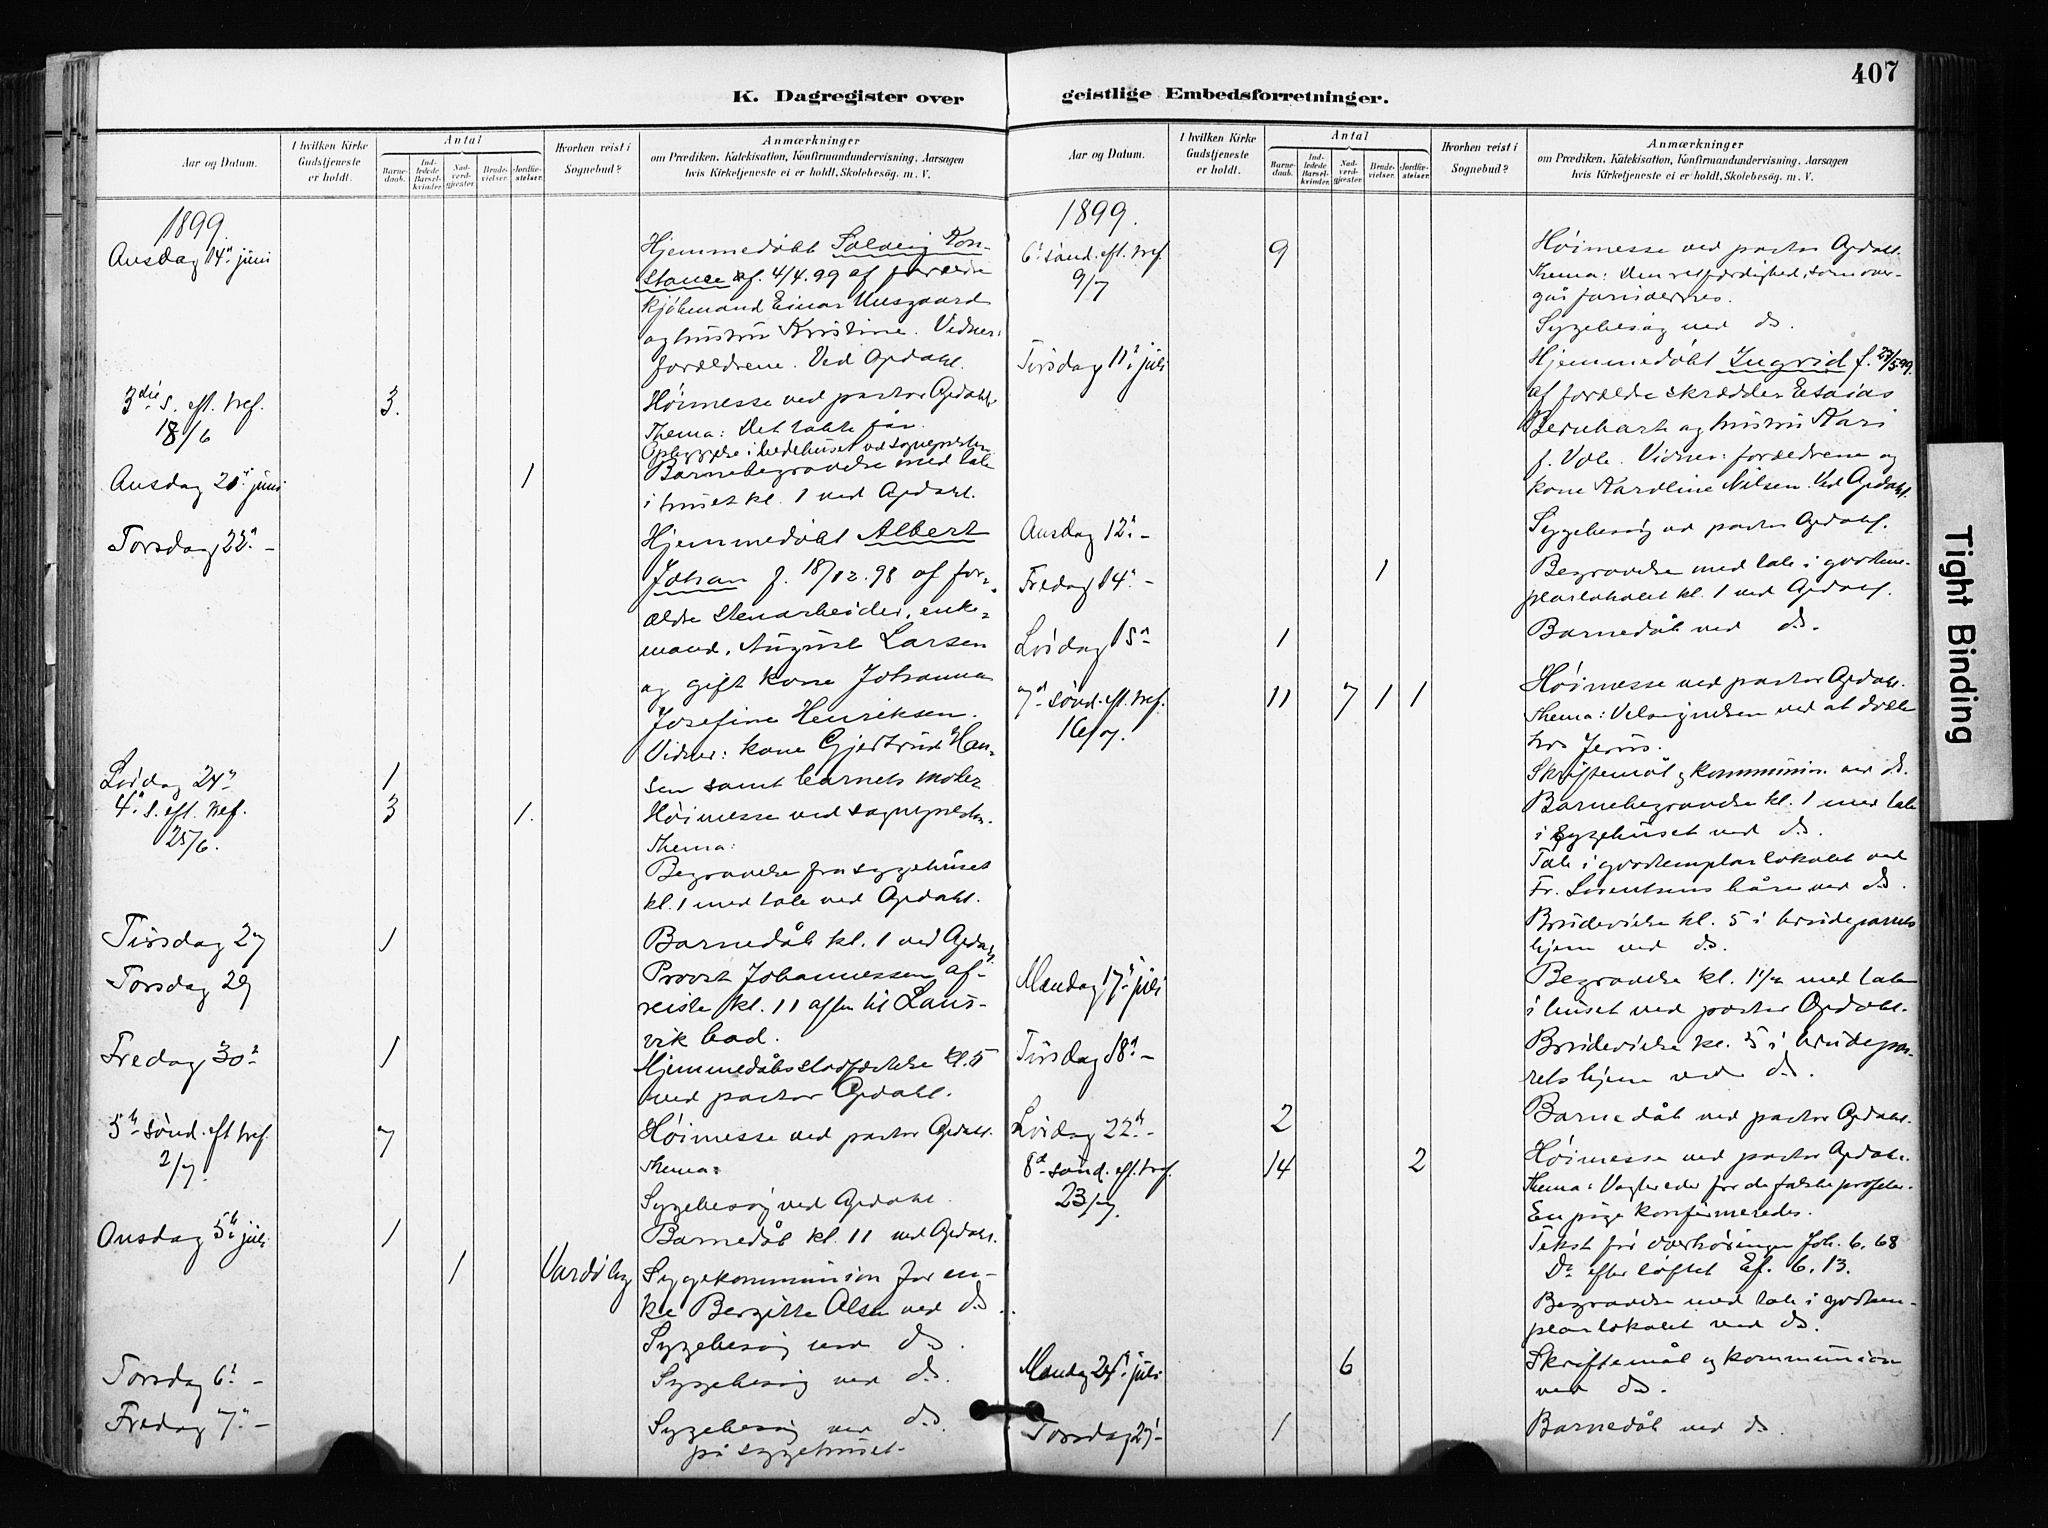 407
K. Dagregister over geistlige Embedsforretninger.
Aar og Datum.
I hvilken Kirke Gudstjeneste er holdt.
Antal
Barnedaab.
Indledede Barselkvinder.
Nadverdgjester.
Brudevielser.
Jordfæstelser.
Hvorhen reist i Sognebud?
Anmærkninger
om Prædiken, Katekisation, Konfirmandundervisning, Aarsagen
hvis Kirketjeneste ei er holdt, Skolebesøg. m. V.
1899.
Onsdag 14. juni
Hjemmedøbt Solveig Kon-
stance f. 4/4.99 af forældre
kjøbmand Einar
og hustru Kristine. Vidner:
forældrene. Ved Opdahl.
3die s. eft. tref. 3. Høimesse ved pastor Opdahl.
18/6 Thema: Det tabte får.
Opbyggelse i bedehuset ved sognepresten
Onsdag 21. juni 1 Barnebegravelse med tale
i huset kl. 1 ved Opdahl.
Torsdag 22. – Hjemmedøbt Albert
Johan f. 18/12.98 af for-
ældre Stenarbeider, enke-
mand, August Larsen
og gift kone Johanna
Josefine Henriksen.
Vidner: kone Gjertrud Han-
Lørdag 24. 1 sen samt barnets moder
4. s. eft. tref. 3 1. Høimesse ved sognepresten.
25/6. Thema:
Begravelse fra sygehuset
kl. 1 med tale ved Opdahl.
Tirsdag 27 1 Barnedåb kl. 1 ved Opdahl.
Torsdag 29 Provst Johannessen af-
reiste kl. 11 aften til Laur-
vik bad.
Fredag 30. 1 Hjemmedåbsstadfæstelse kl. 5
ved pastor Opdahl.
5te sønd. eft tref. 7 Høimesse ved pastor Opdahl.
2/7. Thema:
Sygebesøg ved Opdahl.
Onsdag 5te juli 1 Barnedåb kl. 11 ved Opdahl.
1 Vardø by Sygekommunion for en-
ke Bergitte Olsen ved do.
Sygebesøg ved do.
Torsdag 6. – Sygebesøg ved do.
Fredag 7. – Sygebesøg ved do.
på sygehuset.
Aar og Datum.
I hvilken Kirke Gudstjeneste er holdt.
Antal
Barnedaab.
Indledede Barselkvinder.
Nadverdgjester.
Brudevielser.
Jordfæstelser.
Hvorhen reist i Sognebud?
Anmærkninger
om Prædiken, Katekisation, Konfirmandundervisning, Aarsagen
hvis Kirketjeneste ei er holdt, Skolebesøg. m. V.
1899.
6. sønd. eft. tref. 9 Høimesse ved pastor Opdahl.
9/7 Thema: Den retfærdighed, som over-
går farisæernes.
Sygebesøg ved do.
Tirsdag 11. juli Hjemmedøbt Ingrid f. 23/5.99.
af forældre skrædder Esaias
Bernhart og hustru Kari
f. Vidner: forældrene og
kone Karoline Nilsen. Ved Opdahl.
Onsdag 12. – Sygebesøg ved pastor Opdahl.
Fredag 14. – 1 Begravelse med tale i godtem-
plarlokalet kl. 1 ved Opdahl.
Lørdag 15. 1 Barnedåb ved do.
7d. sønd. eft. tref. 11 7 1 1 Høimesse ved pastor Opdahl.
16/7. Thema: Velsignelsen ved at dvæle
hos Jesus.
Skriftemål og kommunion ved do.
Barnebegravelse kl. 1 med tale
i sygehuset ved do.
Tale i godtemplarlokalet ved
Fr. Sørensens båre ved do.
Brudevielse kl. 5 i brudeparrets
hjem ved do.
Mandag 17. juli Begravelse kl. 1 1/2 med tale
i huset ved pastor Opdahl.
Tirsdag 18. – Brudevielse kl. 5 i brudepar-
rets hjem ved do.
Lørdag 22. – 2 Barnedåb ved pastor Opdahl.
8d. sønd. eft. tref. 14 2 Høimesse ved pastor Opdahl.
23/7. Thema: Vogter eder for de falske profeter.
En pige konfirmeredes.
Tekst før overhøringen Joh. 6, 68
Do. efter løftet Ef. 6. 13.
Begravelse med tale i godtem-
plarlokalet ved do.
Mandag 24. juli 6 Skriftemål og kommunion
ved do.
Torsdag 27. – 1 Barnedåb ved do.
Tight Binding